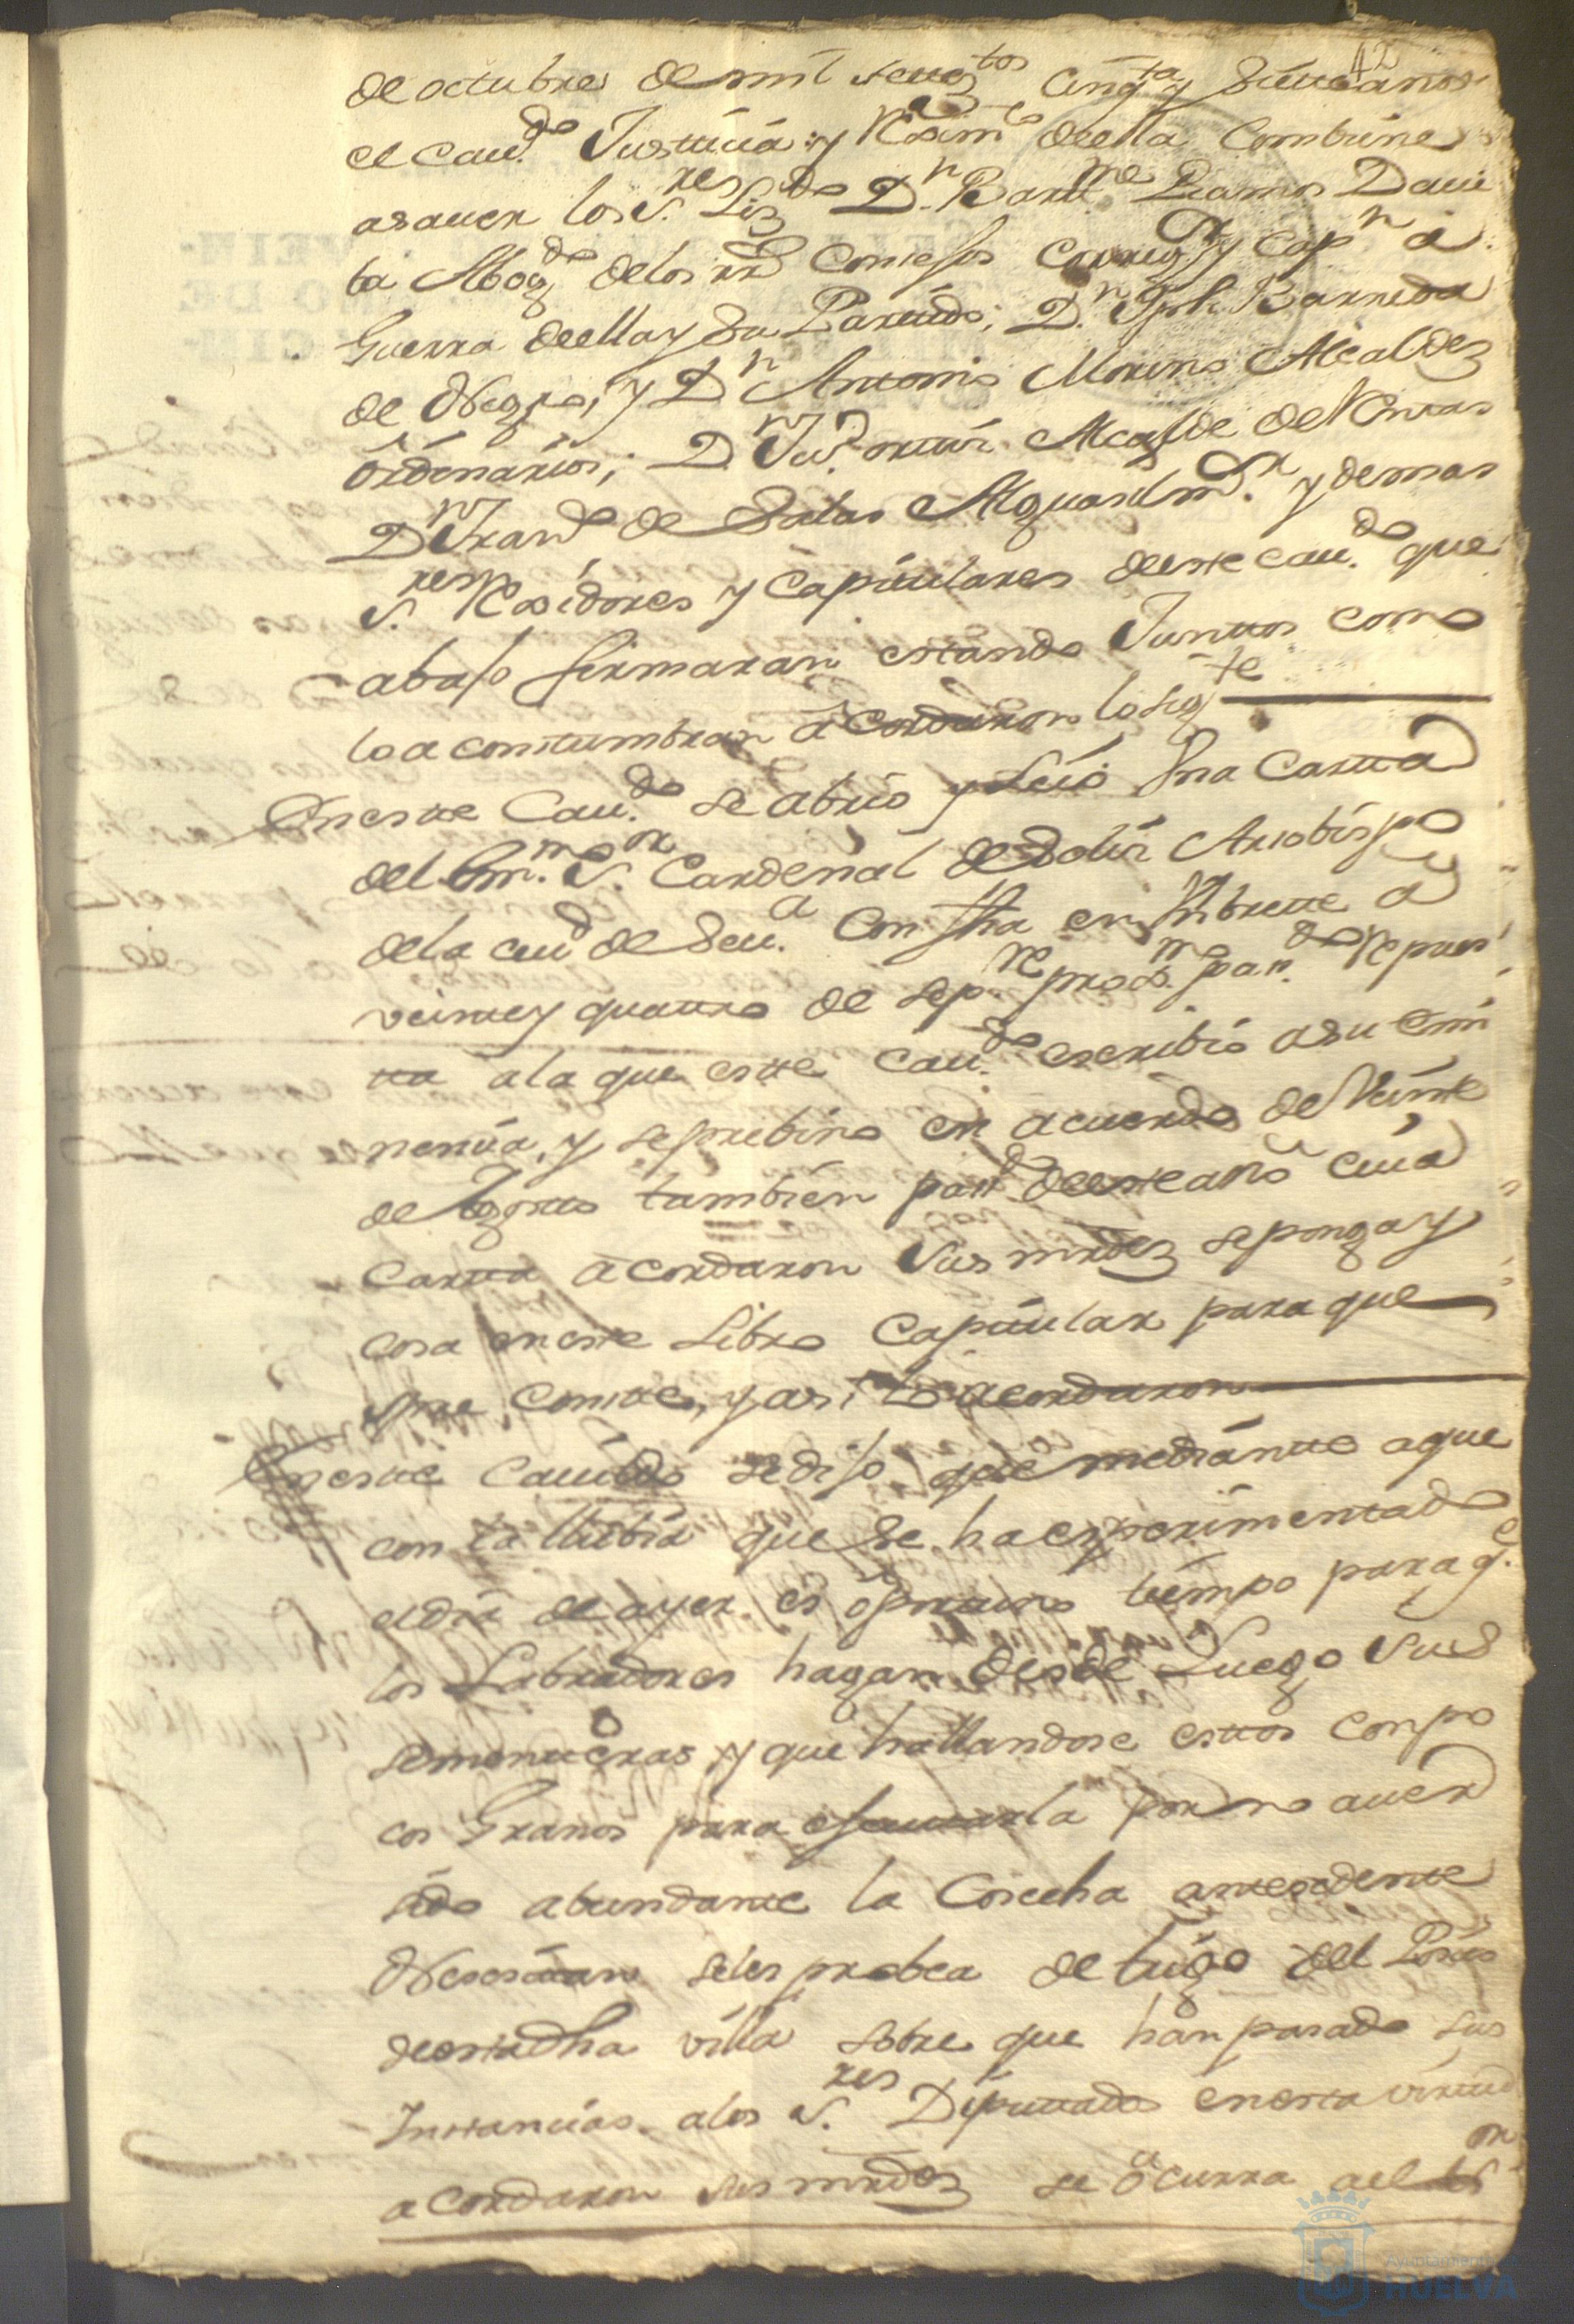 42
de octubre de mil settez.tos Cinq.ta y Siette años
el Cau.do Justticia y Reximt.o de ella Combiene
asauer los S.res Liz.do D.n Bartt.me Ramos Daui
la Abog.do de los rr.s Consejos Correg.or y Cap.n a
Guerra de ella y Su Partido; D.n Jph. Barreda
de Negro, y D.n Antonio Moreno Alcaldes
Ordinarios; D.n Ju.o ortiz Alcalde de
D.n Fran.do de Salas Alguasil m.or y demas
S.res Rexidores y Capitulares de este cau.do que
abajo firmaran estando Junttos como
lo acostumbran acordaron lo sig.te
En este Cau.do se abrio y Leio Una Cartta
del Em.mo S.or Cardenal de Solis Arzobispo
de la ciu.d de Seu.a Con fha en Umbrette a
veinte y quattro de Sep.re prox.mo pas.do Repues
tta a la que este Cau.do escribió a su Emi
nencia, y se prebino en acuerdo de Veinte
de Agosto tambien pas.do de este año cuia
Cartta acordaron Sus mrdes se ponga y
cosa en este Libro Capitular para que
spre Conste, y asi lo acordaron
En este Cauildo se dijo que mediantte a que
con la llubia que se ha experimentado
el dia de ayer es oportuno tiempo para q.e
los Labradores hagan desde Luego Sus
sementteras y que hallandose esttos con po
cos Granos para efecttuarla por no auer
sido abundante la Cosecha antesedente
Nesesitan se les probea de trigo del Posito
de esta dha villa sobre que han pasado sus
Instancias a los S.res Diputtados en esta virtud
acordaron sus mrdes se ocurra a el S.or
Ayuntamiento de
HUELVA